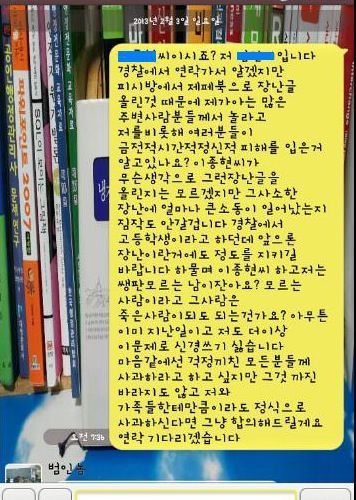 2013년 2월 3일 일요일
씨이시죠? 저 입니다
경찰에서 연락가서 알겠지만
피시방에서 제페북으로 장난글
올린것 때문에 제가아는 많은
주변사람분들께서 놀라고
저를비롯해 여러분들이
금전적시간적정신적 피해를 입은거
알고있나요? 이종현씨가
무슨생각으로 그런장난글을
올린지는 모르겠지만 그사소한
장난에 얼마나 큰소동이 일어났는지
짐작도 안갈겁니다 경찰에서
고등학생이라고 하던데 앞으론
장난이란거에도 정도를 지키길
바랍니다 하물며 이종현씨 하고저는
쌩판모르는 남이잖아요? 모르는
사람이라고 그사람은
죽은사람이되도 되는건가요? 아무튼
이미 지난일이고 저도 더이상
이문제로 신경쓰기 싫습니다
마음같에선 걱정끼친 모든분들께
사과하라고 하고 싶지만 그것 까진
바라지도 않고 저와
가족들한테만큼이라도 정식으로
사과하신다면 그냥 합의해드릴게요
연락 기다리겠습니다
오전 7:36
범인놈
공인행정관리사 문제 연구
파워포인트 2007
SQL